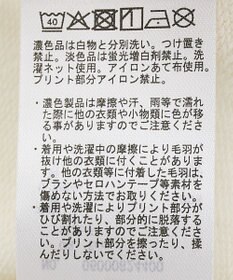 40
濃色品は白物と分別洗い。つけ置き
禁止。淡色品は蛍光増白剤禁止。洗
濯ネット使用。アイロンあて布使用。
プリント部分アイロン禁止。
・濃色製品は摩擦や汗、雨等で濡れ
た際に他の衣類や小物類に色が移
る事がありますのでご注意くださ
い。
・着用や洗濯中の摩擦により毛羽が
抜け他の衣類に付くことがありま
す。他衣類等に付着した毛羽は、
ブラシやセロハンテープ等素材を
傷めない方法でお取りください。
・着用や洗濯によりプリント部分が
ひび割れたり、部分的に脱落するこ
とがありますのでご注意ください。
プリント部分を擦ったり、揉
んだりしないでください。